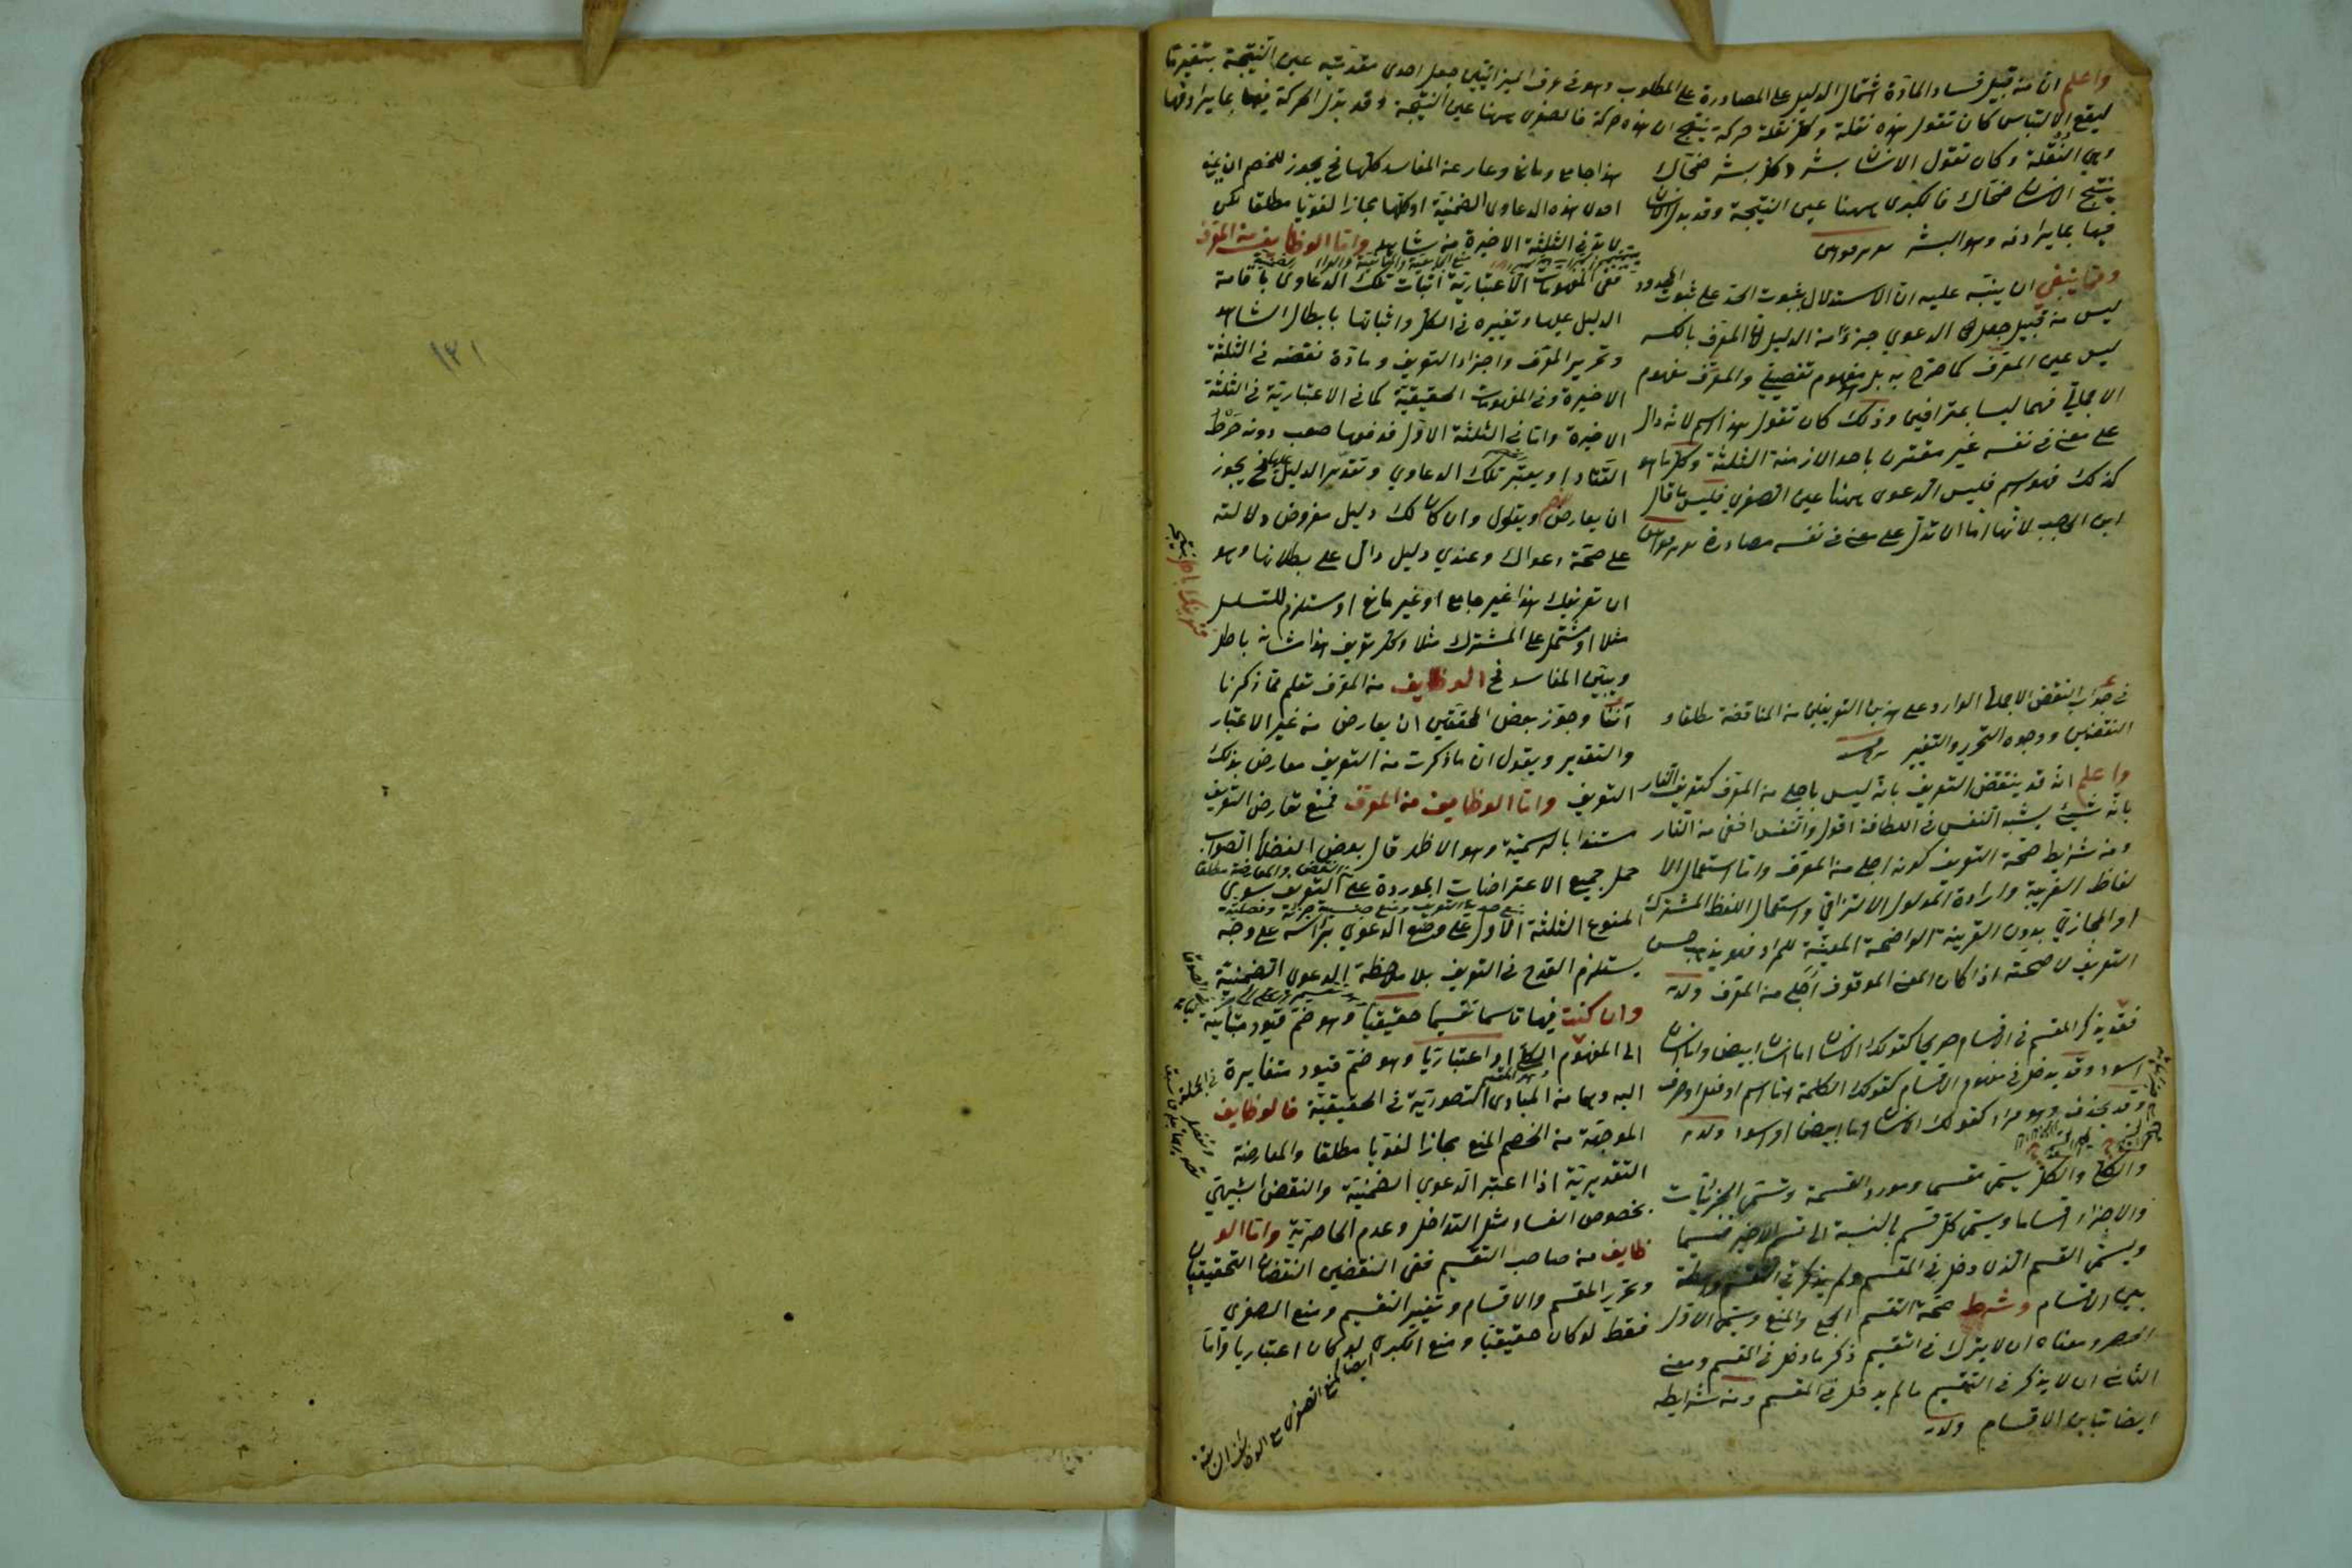 واعلم ان من قبيل فساد المادة اشتمال الدليل على المصادرة على المطلوب وهو في عرف الميزانيين جعل احدى مقدمتيه عين النتيجة بتغير ما
ليقع الالتباس كان تقول هذه نقلة وكل نقلة حركة ينتج ان هذه حركة فالصغرى ههنا عين النتيجة وقد بدل الحركة فيها بما يرادفها
وهي النقلة وكان تقول الانسان بشر وكل بشر ضحاك
ينتج الانسان ضحاك فالكبرى ههنا عين النتيجة وقد بدل الانسان
فيها بما يرادفه وهو البشر
ومما ينبغي ان ينبه عليه ان الاستدلال بثبوت الحد على ثبوت المحدود
ليس من قبيل جعل الدعوي جزءا من الدليل
ليس عين المعرف كما صرح به بل مفهوم تفصيلي والمعرف مفهوم
الاجمالي فهما ليسا بمترادفين وذلك كان تقول هذا اسم لانه دال
على معنى في نفسه غير مقترن باحد الازمنة الثلثة وكل ما هو
كذلك فهو اسم فليس الدعوى ههنا عين الصغرى فليس ما قال
ابن الحاجب لانها اما ان تدل على معنى في نفسه مصادرة
في جواب النقض الاجمالي الوارد على هذين التعريفين من المناقضة مطلقا و
النقضين ووجوه التحرير والتغيير
واعلم انه قد ينتقض التعريف بانه ليس باجلى من المعرف كتعريف النار
بانه شيئ يشبه النفس في اللطافة اقول والنفس اخفى من النار
ومن شرايط صحة التعريف كونه اجلى من المعرف واما استعمال الا
لفاظ الغريبة وارادة المدلول الالتزامي واستعمال اللفظ المشترك
او المجازي بدون القرينة الواضحة المعينة للمراد فهو يذهب حسن
التعريف لا صحته اذا كان المعنى الموقوف اجلى من المعرف
فقد يذكر المقسم في الاقسام صريحا كقولك الانسان اما انسان ابيض واما انسان
اسود وقد يدخل في مفهوم الاقسام كقولك الكلمة اما اسم او فعل او حرف
وقد يحذف وهو مراد كقولك الانسان اما ابيض او اسود
والكلي والكل يسمى مقسما ومورد القسمة وتسمى الجزئيات
والاجزاء اقساما ويسمى كل قسم بالنسبة الى قسم الاخير قسيما
ويسمى القسم الذى دخل في المقسم ولم يذكر في التقسيم واسطة
بين الاقسام وشرط صحة التقسيم الجمع والمنع ويسمى الاول
الحصر ومعناه ان لا يترك في التقسيم ذكر ما دخل في المقسم ومعنى
الثاني ان لا يذكر في التقسيم ما لم يدخل في المقسم ومن شرايطه
ايضا تباين الاقسام
هذا جامع ومانع وعار عن المفاسد كلها فح يجوز للخصم ان يمنع
احدى هذه الدعاوى الضمنية او كلها مجازا لغويا مطلقا لكن
لا بد في الثلثة الاخيرة من شاهد واما الوظايف من المعرف
ففى المفهومات الاعتبارية اثبات تلك الدعاوى باقامة
الدليل عليها وتغييره في الكل واثباتها بابطال الشاهد
وتحرير المعرف واجزاء التعريف ومادة نقضه في الثلثة
الاخيرة وفي المفهومات الحقيقية كما في الاعتبارية في الثلثة
الاخيرة واما في الثلثة الاول فدفعها صعب دونه خرط
القتاد او يعتبر تلك الدعاوي وتقدير الدليل عليها فح يجوز
ان يعارض ويقول وان كان لك دليل مفروض دلالته
على صحة دعواك وعندي دليل دال على بطلانها وهو
ان تعريفك هذا غير جامع او غير مانع او مستلزم للتسلسل
مثلا او مشتمل على المشترك مثلا وكل تعريف هذا شانه باطل
ويبين المفاسد فح الوظايف من المعرف تعلم مما ذكرنا
آنفا وجوز بعض المحققين ان يعارض من غير الاعتبار
والتقدير ويقول ان ما ذكرت من التعريف معارض بذلك
التعريف واما الوظايف من المعرف فمنع تعارض التعريف
مستندا بالرسمية وهو الاظهر قال بعض الفضلاء الصواب
حمل جميع الاعتراضات الموردة على التعريف سوى
المنوع الثلثة الاول على وضع الدعوي براسه على وجه
يستلزم القدح في التعريف بلا ملاحظة الدعوى الضمنية
وان كنت فيها قاسما تقسيما حقيقيا وهو ضم قيود متباينة
الى المفهوم الكلي او اعتباريا وهو ضم قيود متغايرة في الجملة
اليه وهما من المبادى التصورية في الحقيقية فالوظايف
الموجهة من الخصم المنع مجازا لغويا مطلقا والمعارضة
التقديرية اذا اعتبر الدعوي الضمنية والنقض الشبيهي
بخصوص الفساد مثل التداخل وعدم الحاصرية واما الو
ظايف من صاحب التقسيم ففى النقضين النقضان التحقيقيان
وتحرير المقسم والاقسام وتغيير التقسيم ومنع الصغرى
فقط لو كان حقيقيا ومنع الكبرى لو كان اعتباريا واما
١٢١